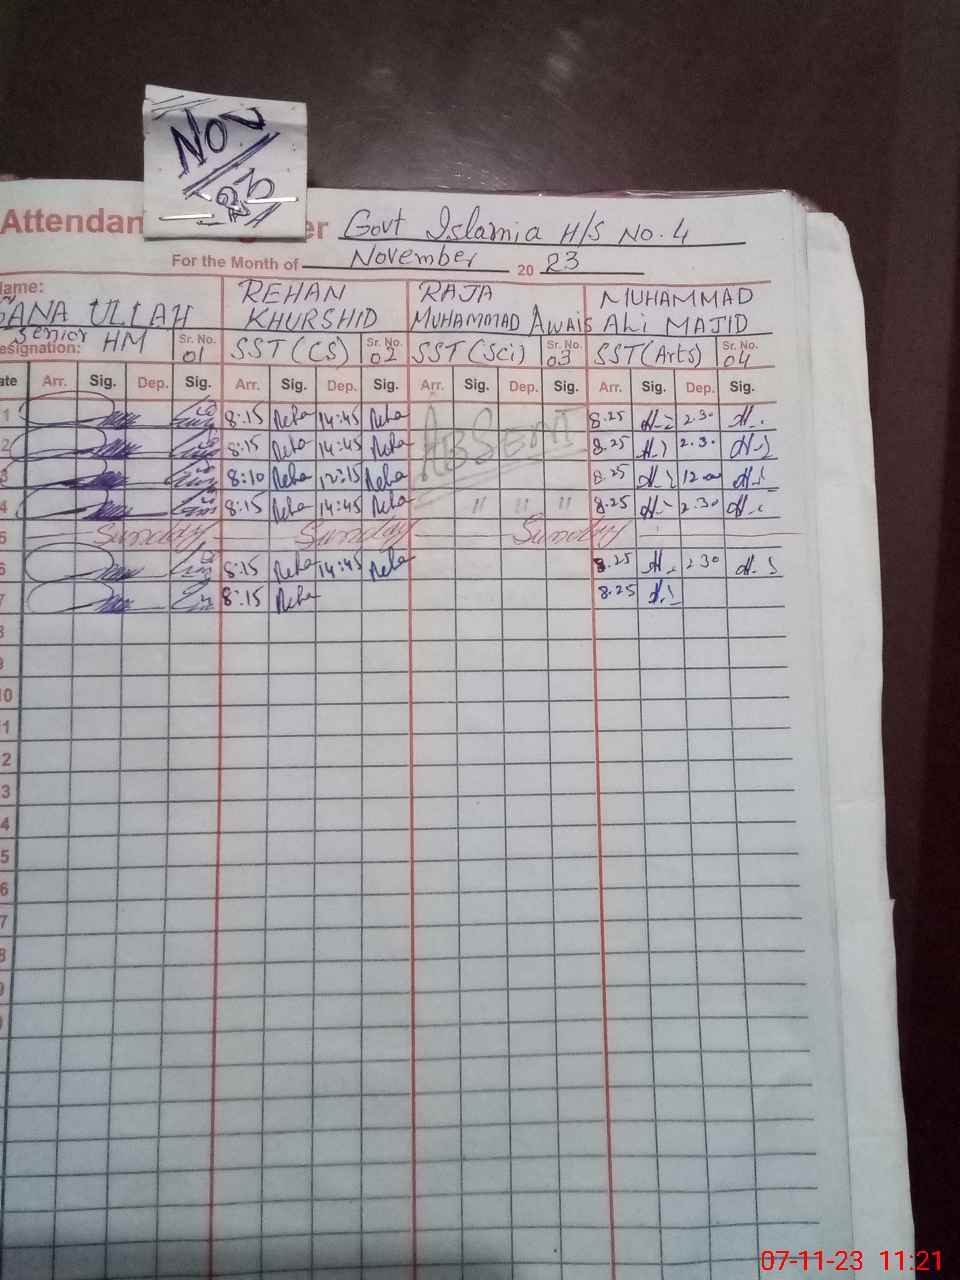 Nov
23
Attendan er Govt Islamia H/S No. 4
For the Month of November 20 23
Name: REHAN RAJA MUHAMMAD
SANA ULLAH KHURSHID MUHAMMAD Awais Ali MAJID
Senior
Designation: HM Sr. No. 01 SST (CS) Sr. No. 02 SST (Sci) Sr. No. 03 SST (Arts) Sr. No. 04
ate Arr. Sig. Dep. Sig. Arr. Sig. Dep. Sig. Arr. Sig. Dep. Sig. Arr. Sig. Dep. Sig.
1 8:15 Reha 14:45 Reha ABSENT 8.25 2.30
2 8:15 Reha 14:45 Reha 8.25 2.30
3 8:10 Reha 12:15 Reha 8.25 12.00
4 8:15 Reha 14:45 Reha " " " 8.25 2.30
5 Sunday Sunday Sunday
6 8:15 Reha 14:45 Reha 8.25 2 30
7 8:15 Reha 8.25
8
9
10
11
2
3
4
5
6
7
8
9
07-11-23 11:21